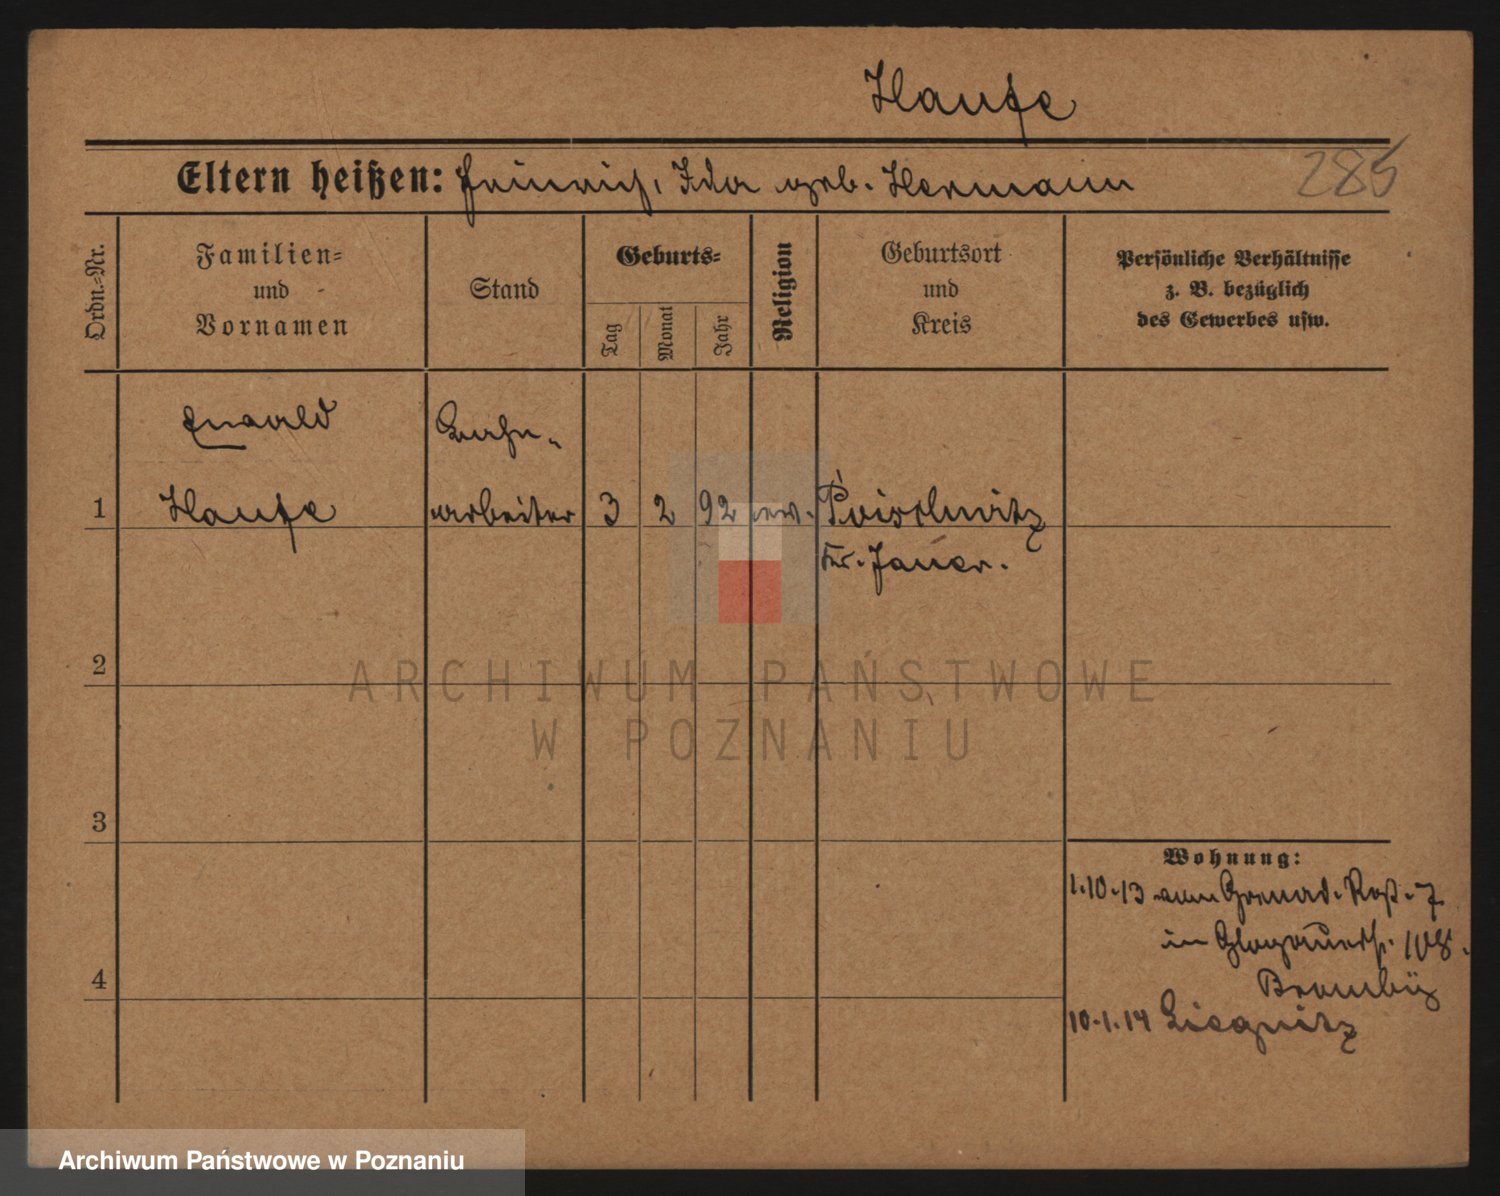 Haufe
Eltern heißen: Heinrich, Ida geb. Hermann
285
Ordn.-Nr.
Familien-
und
Vornamen
Stand
Geburts-
Tag
Monat
Jahr
Religion
Geburtsort
und
Kreis
Persönliche Verhältnisse
z. B. bezüglich
des Gewerbes usw.
Ewald
Haufe
Bahn-
arbeiter
1
3 2 92 ev.
Poischwitz
Kr. Jauer.
2
3
4
Wohnung:
1.10.13 vom Grenad. Rgt. 7
in Glogauerstr. 108.
10.1.14 Liegnitz
ARCHIWUM PAŃSTWOWE
W POZNANIU
Archiwum Państwowe w Poznaniu